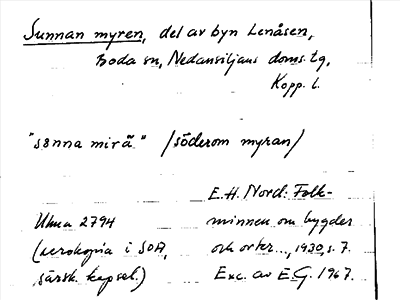 Sunnan myren, del av byn Lenåsen,
Boda sn, Nedansiljans doms.tg,
Kopp. l.
"sønna mirä" /söderom myran/
E. H. Nord: Folk-
minnen om bygder
och orter..., 1930, s. 7.
Exc. av E.G. 1967.
Ulma 2794
(xerokopia i SOA,
särsk. kapsel.)